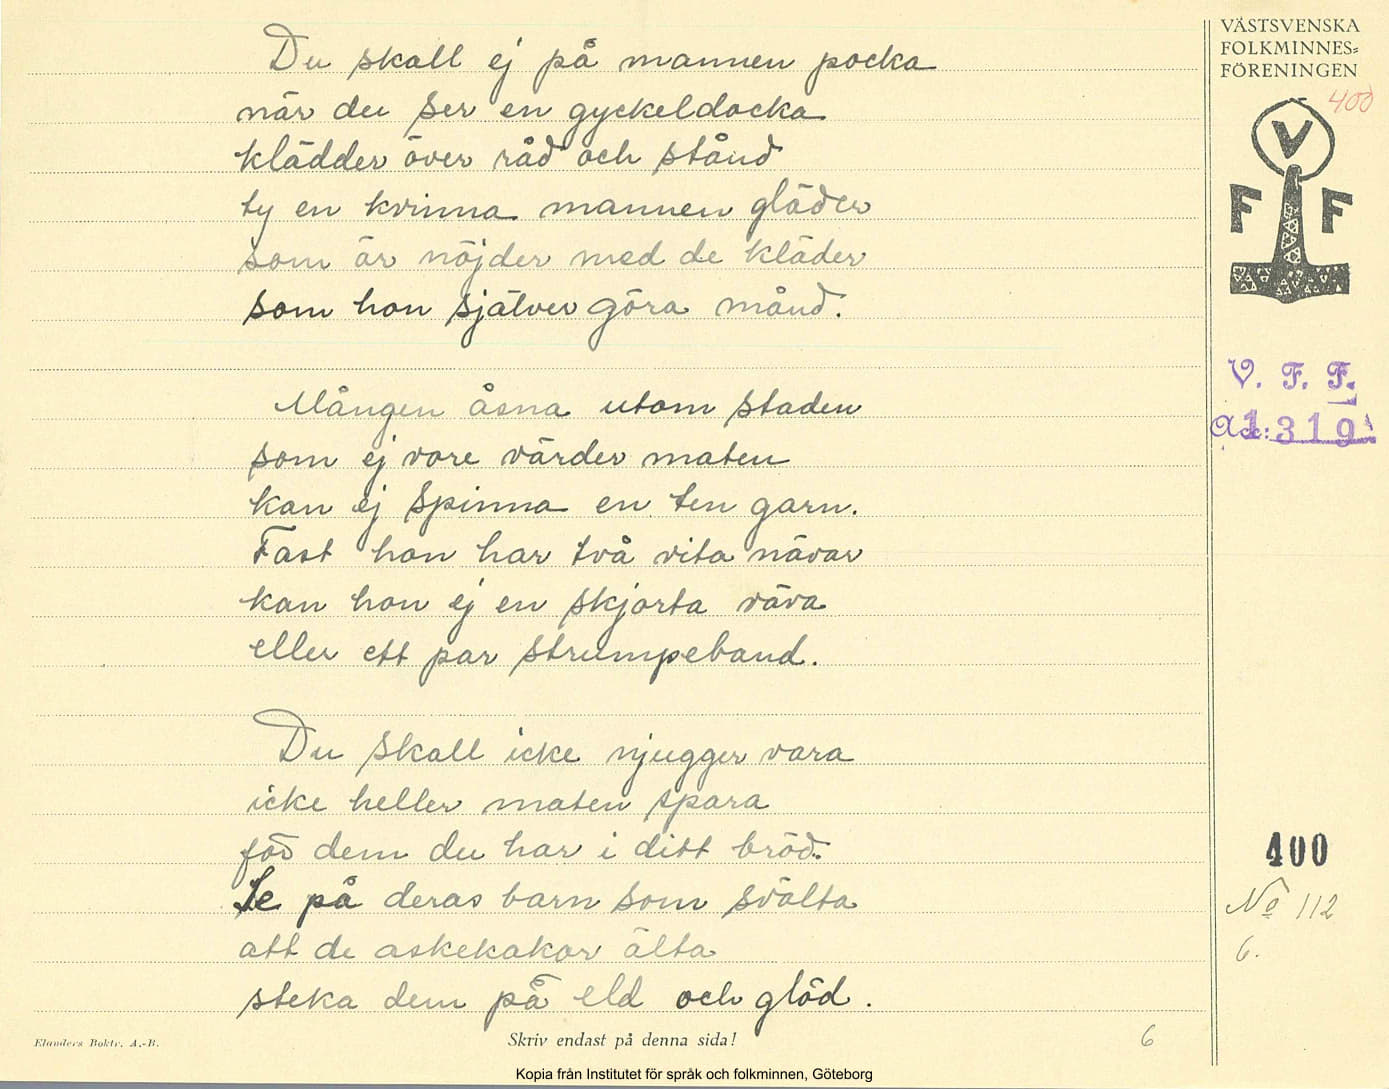 Du skall ej på mannen pocka
när du ser en gyckeldocka
klädder över råd och stånd
ty en kvinna mannen gläder
som är nöjder med de kläder
som hon själver göra månd.
Mången åsna utom staden
som ej vore värder maten
kan ej spinna en ten garn.
Fast hon har två vita nävar
kan hon ej en skjorta väva
eller ett par strumpeband.
Du skall icke njugger vara
icke heller maten spara
för dem du har i ditt bröd.
Se på deras barn som svälta
att de askekakor älta
steka dem på eld och glöd.
VÄSTSVENSKA
FOLKMINNES=
FÖRENINGEN
400
V
F F
V. F. F.
Acc: 1319
400
No 112
6.
Elanders Boktr. A.-B.
Skriv endast på denna sida!
6
Kopia från Institutet för språk och folkminnen, Göteborg